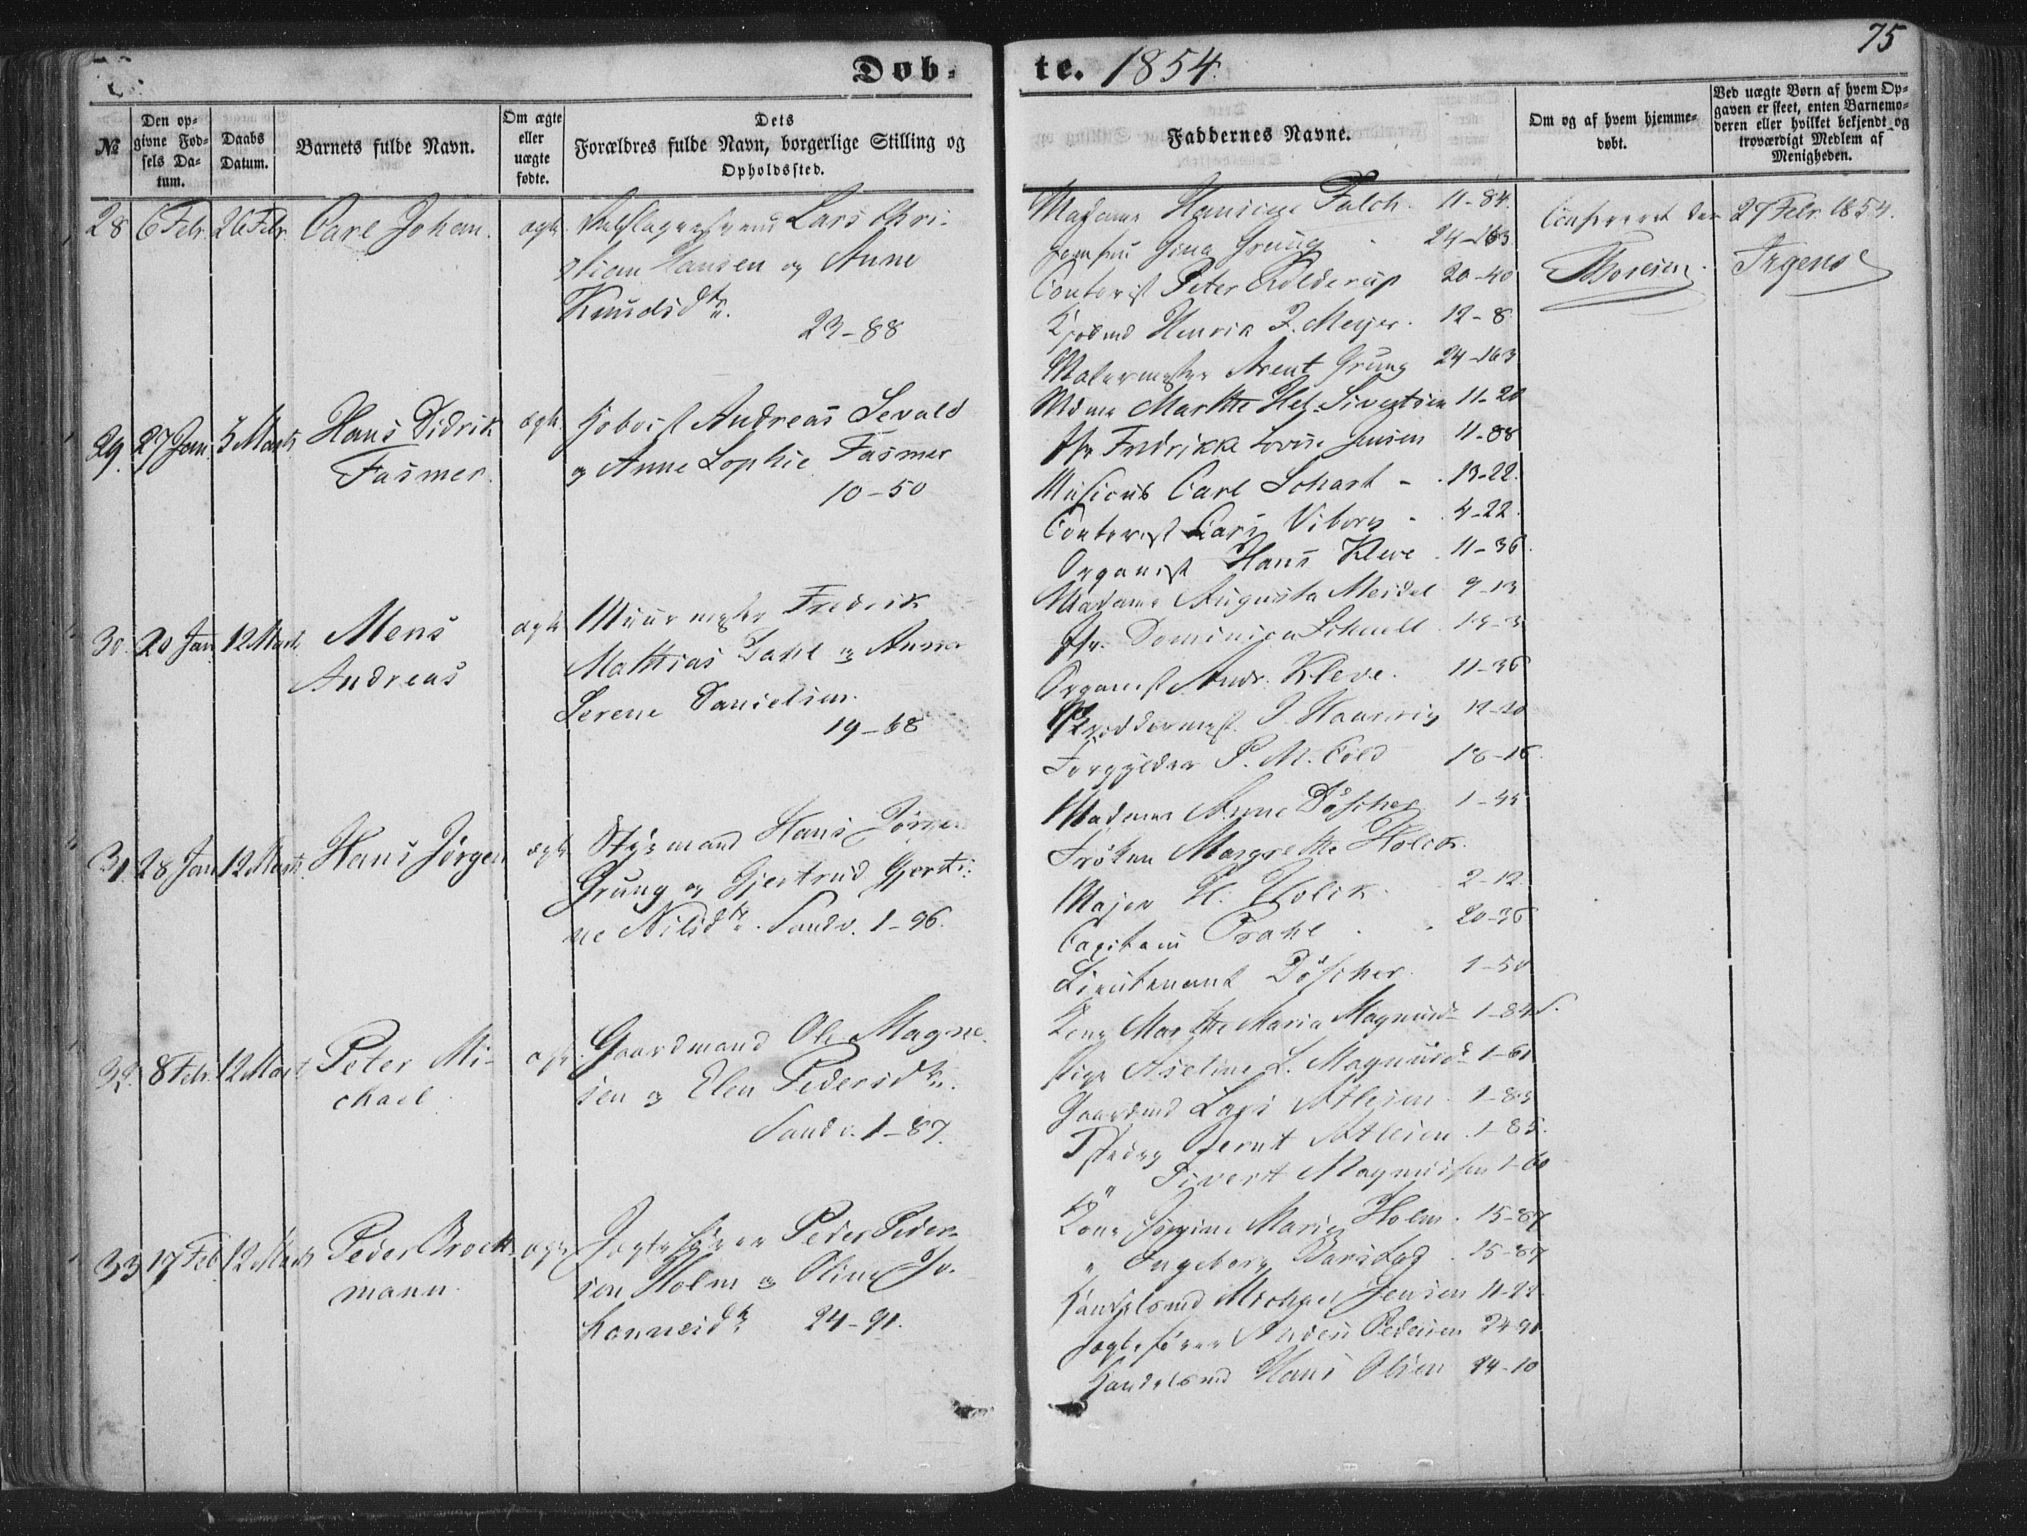 75
Døb-
te. 1854.
№
Den op-
givne Fød-
sels Da-
tum.
Daabs
Datum.
Barnets fulde Navn.
Om ægte
eller
uægte
fødte.
Dets
Forældres fulde Navn, borgerlige Stilling og
Opholdssted.
Faddernes Navne.
Om og af hvem hjemme-
døbt.
Ved uægte Børn af hvem Op-
gaven er skeet, enten Barnemo-
deren eller hvilket bekjendt og
troværdigt Medlem af
Menigheden.
28 6 Febr. 26 Febr. Carl Johan. ægte Lars Chri-
stian Hansen og Anne
Knudsdtr.
23-88
Madame Hansine Falch. 11-84.
Jomfru Gina Grung 24-163
Contorist Peter Rolderup 20-40
Kjøbmd Henrik J. Meyer. 12-8
Malermester Arent Grung 24-163
Confereret den 27 Febr. 1854.
Thoresen. Irgens
29. 27 Jan. 5 Marts Hans Didrik
Fasmer.
ægte Hoboist Andreas Sevald
og Anne Sophie Fasmer
10-50
Mdme Marthe Hel. Sivertsen 11-20
Jfr Fredrikke Lovise Jensen 11-88
Musicus Carl Schart - 13-22.
Contorist Viborg - 4-22.
Organist Hans Kleve. 11-36.
30. 20 Jan 12 Marts Mens
Andreas
ægte Muurmester Fredrik
Mathias Dahl og Anna
Serene Danielsen.
19-
Madame Augusta Meidel 9-13
Jfr. Dominica Schnell
Organist Andr. Kleve. 11-36
J.
Forgylder P. M. Cold 18-16.
31. 28 Jan 12 Marts. Hans Jørgen ægte Styrmand Hans Jørgen
Grung og Gjertrud Gjerti-
ne Nilsdtr. Sandv. 1-96.
Madame Anne Döscher 1-
Frøken Margrethe Holck.
Major H. Holck. 2-12.
Capitain Prahl 20-36
Lieutenant Döscher. 1-50
32. 8 Febr. 12 Marts Peter Mi-
chael.
ægte Gaardmand Ole Magne-
sen og Elen Pedersdtr.
Sandv. 1-87.
Kone Marthe Maria Magnusd. 1-84
Pige Aseline L. Magnusd. 1-61
Gaardmd Lars Atlesen. 1-83
Bernt Atlesen. 1-85.
" Sivert Magnussen 1-60
33 17 Feb. 12 Marts Peder Brock-
mann.
ægte Jægtefører Peder Peder-
sen Holm og Oline Jo-
hannesdtr. 24-91.
Kone Marie Holm. 15-87
" Ingeborg 15-87
Handelsmd Michael Jensen
Jægtefører Pedersen 24-91.
Handelsmd Hans Olsen 24-10